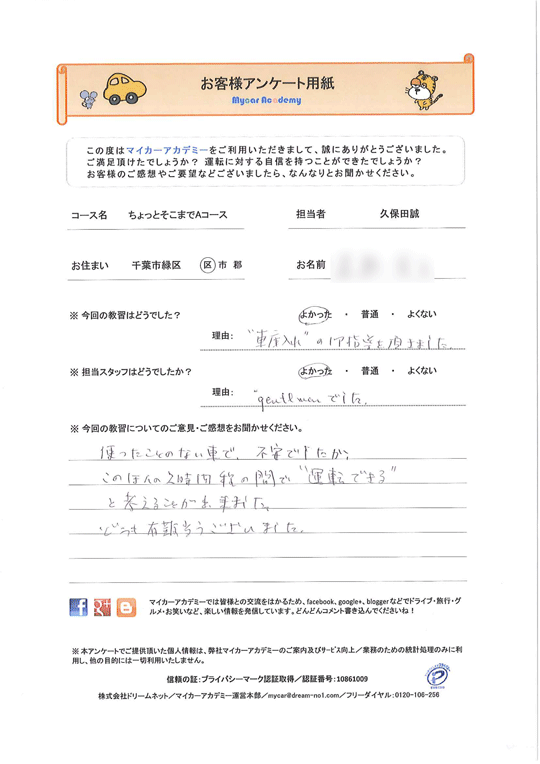 お客様アンケート用紙
Mycar Academy
この度はマイカーアカデミーをご利用いただきまして、誠にありがとうございました。
ご満足頂けたでしょうか？ 運転に対する自信を持つことができたでしょうか？
お客様のご感想やご要望などございましたら、なんなりとお聞かせください。
コース名 ちょっとそこまでAコース 担当者 久保田誠
お住まい 千葉市緑区 区 市 郡 お名前
※ 今回の教習はどうでした？ よかった ・ 普通 ・ よくない
理由： "車庫入れ" の 指導を頂きました。
※ 担当スタッフはどうでしたか？ よかった ・ 普通 ・ よくない
理由： "gentleman でした。
※ 今回の教習についてのご意見・ご感想をお聞かせください。
使ったことのない車で、不安でしたが、
このほんの2時間程の間で "運転できる"
と考えることが出来ました。
どうも有難うございました。
マイカーアカデミーでは皆様との交流をはかるため、facebook、google+、bloggerなどでドライブ・旅行・グ
ルメ・お笑いなど、楽しい情報を発信しています。どんどんコメント書き込んでくださいね！
※ 本アンケートでご提供頂いた個人情報は、弊社マイカーアカデミーのご案内及びサービス向上／業務のための統計処理のみに利
用し、他の目的には一切利用いたしません。
信頼の証：プライバシーマーク認証取得／認証番号：10861009
株式会社ドリームネット／マイカーアカデミー運営本部／mycar@dream-no1.com／フリーダイヤル：0120-106-256